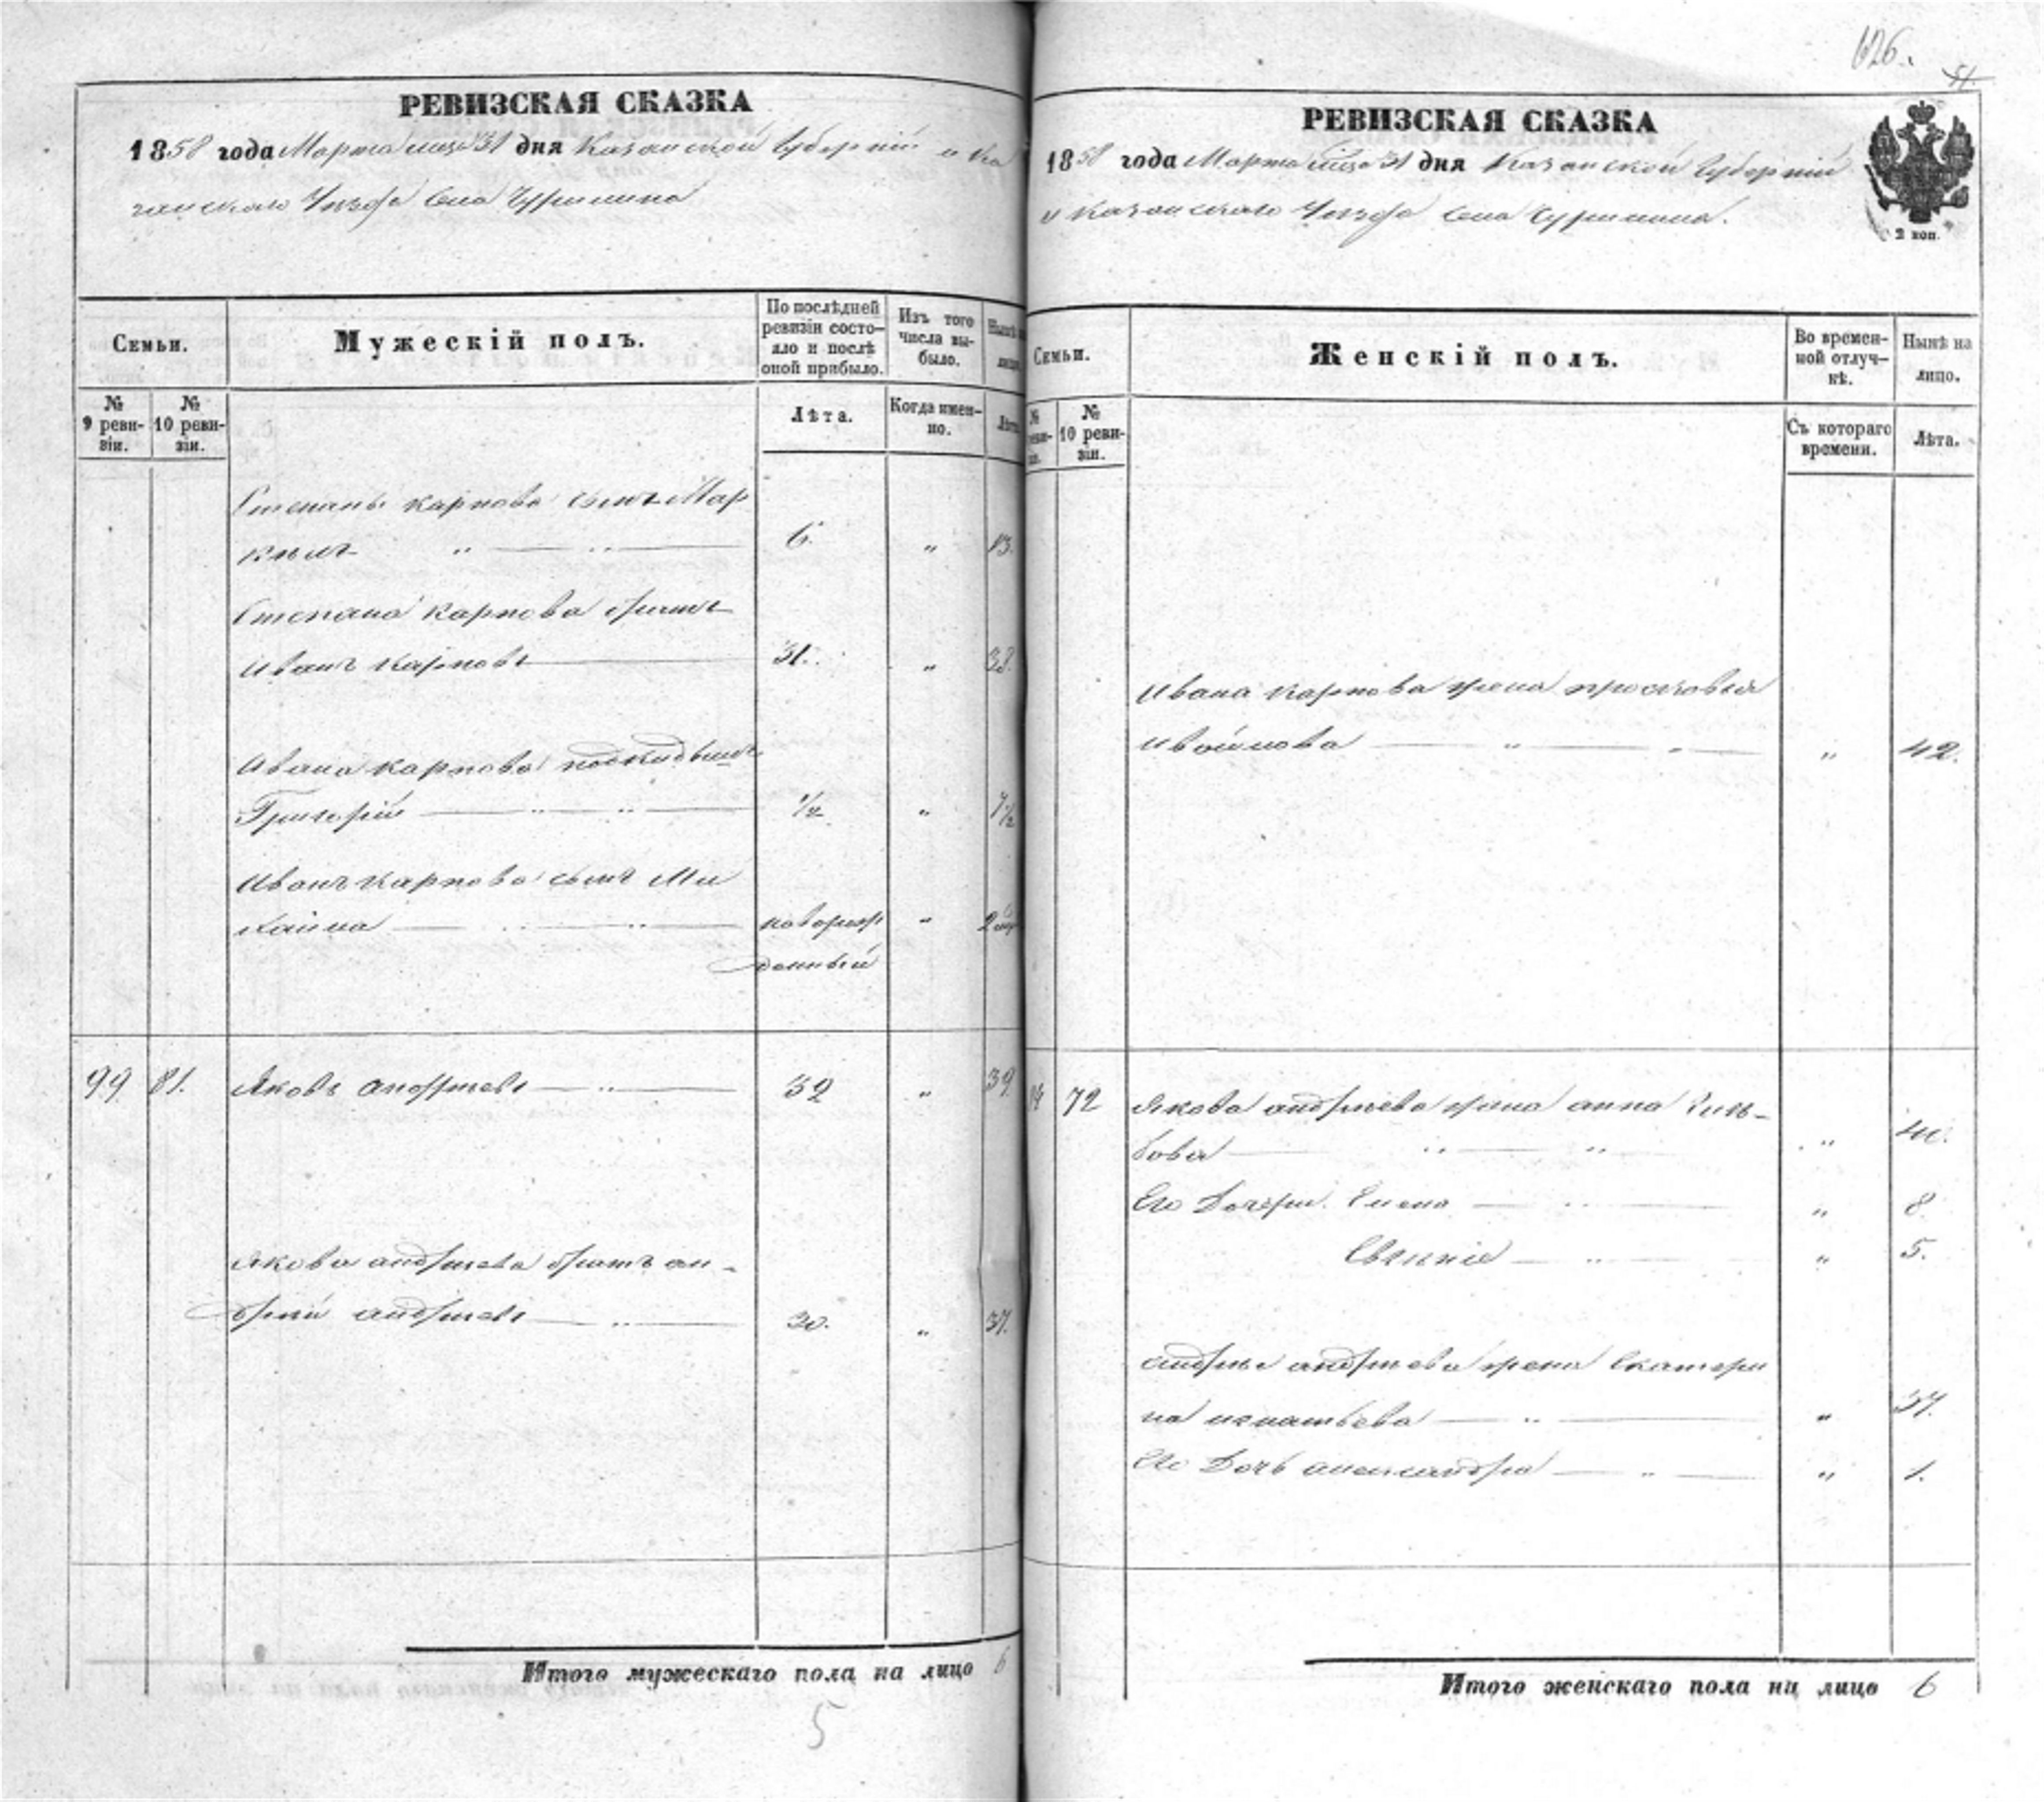 626.
РЕВИЗСКАЯ СКАЗКА
1858 года Марта 31 дня Казанской Губерніи и Ка
занскаго Уезда Села Чурилина
Семьи.
Мужескій полъ.
По послѣдней ревизіи состояло и послѣ оной прибыло.
Изъ того числа выбыло.
№ 9 ревизіи.
№ 10 ревизіи.
Лѣта.
Когда именно.
Степана карпова сынъ Мар
6. „ 13.
Степана карпова братъ
Иванъ карповъ 31. „ 38.
Ивана карпова подкидышъ
Григорій ½ „ 7½
Иванъ карпова сынъ Ми
хаила новорож „ 2
денный
99 81. Яковъ андреевъ 32 „ 39.
Якова андреева братъ ан-
дрей андреевъ 30. „ 37.
Итого мужескаго пола на лицо 6
5
РЕВИЗСКАЯ СКАЗКА
1858 года Марта 31 дня Казанской Губерніи
и Казанскаго Уезда Села Чурилина.
2 коп.
Семьи.
Женскій полъ.
Во временной отлучкѣ.
Нынѣ на лицо.
№ 10 ревизіи.
Съ котораго времени.
Лѣта.
Ивана карпова жена просковья
„ 42.
72 Якова андреева жена анна Глѣ-
бова „ 40.
Его Дочери. Елена „ 8.
Евгенія „ 5.
андрея андреева жена Екатери
на игнатьева „ 37.
Его Дочь александра „ 1.
Итого женскаго пола на лицо 6